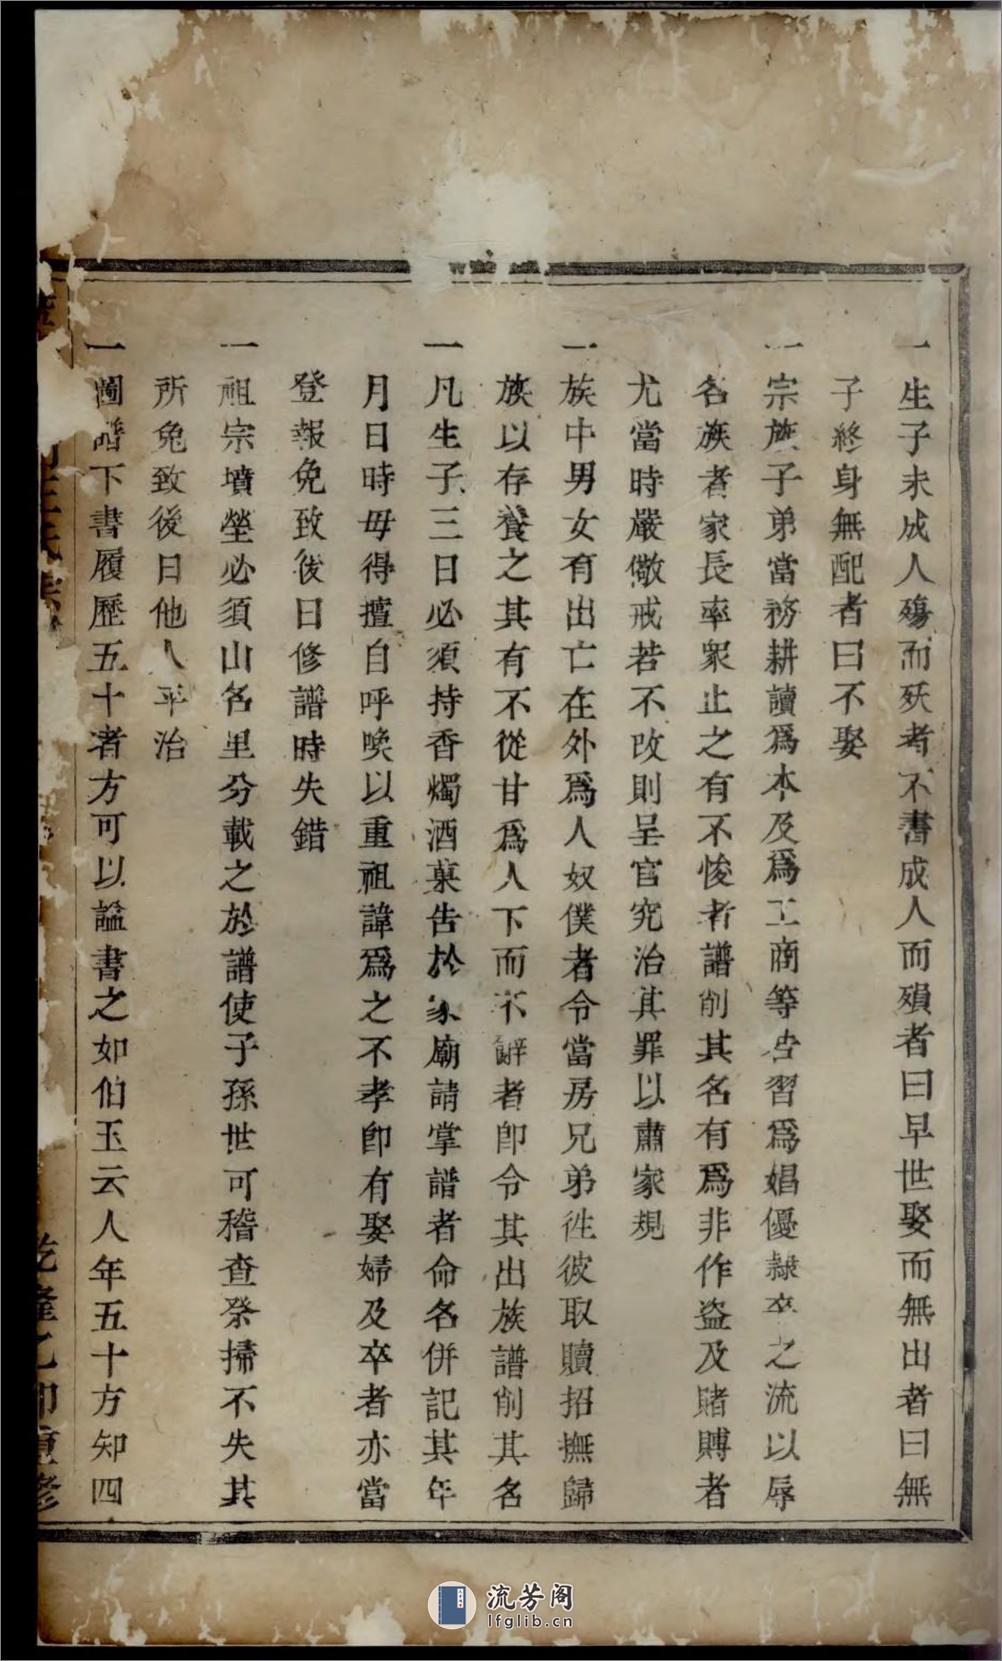 一生子未成人殤而殀者不書成人而殞者曰早世娶而無出者曰無
子終身無配者曰不娶
一宗族子弟當務耕讀爲本及爲工商等若習爲娼優隸卒之流以辱
名族者家長率衆止之有不悛者譜削其名有爲非作盗及賭賻者
尤當時嚴儆戒若不改則呈官究治其罪以肅家規
一族中男女有出亡在外爲人奴僕者令當房兄弟徃彼取贖招撫歸
族以存養之其有不從甘爲人下而不辭者卽令其出族譜削其名
一凡生子三日必須持香燭酒菓告於家廟請掌譜者命名併記其年
月日時毋得擅自呼喚以重祖諱爲之不孝卽有娶婦及卒者亦當
登報免致後日修譜時失錯
一祖宗墳塋必須山名里分載之於譜使子孫世可稽查祭掃不失其
所免致後日他人平治
一圖譜下書履歷五十者方可以謚書之如伯玉云人年五十方知四
王氏 乾隆乙卯重修
流芳阁
lfglib.cn